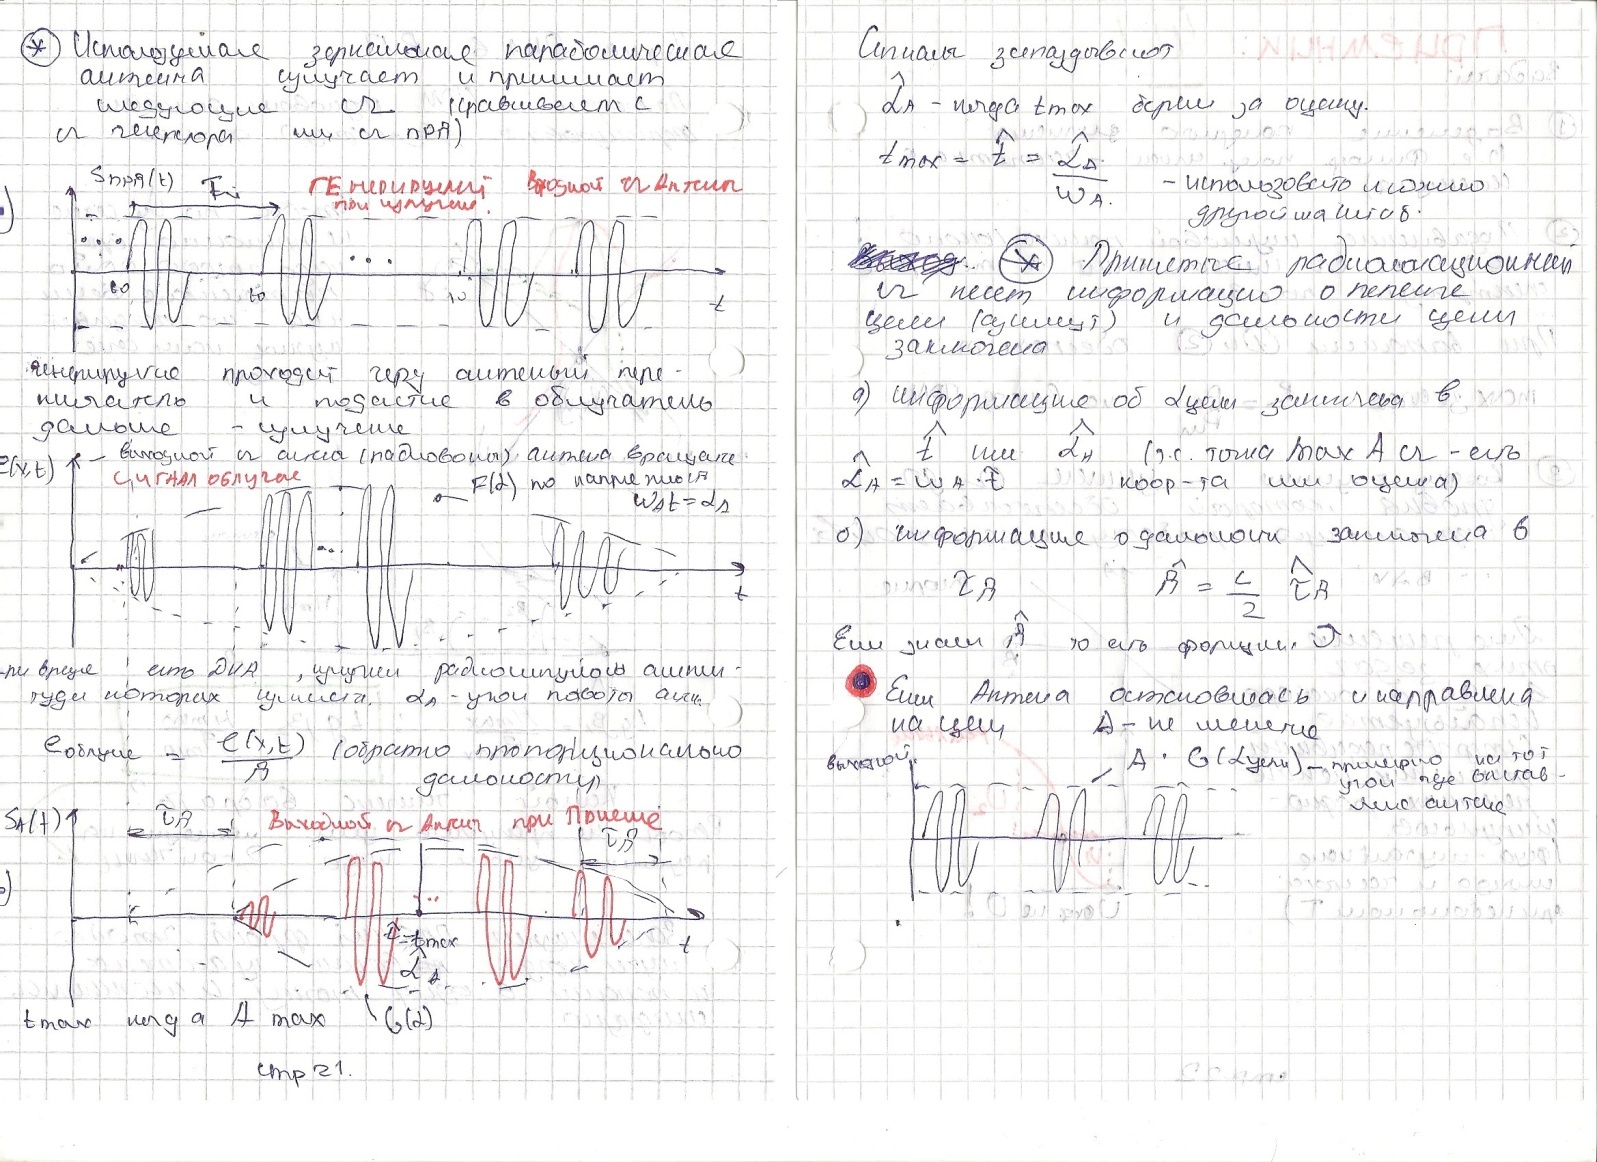 Используемая зеркальная параболическая
антенна излучает и принимает
следующие сг (сравниваем с
сг генератора или сг ПРД)
Sпрд(t) Tи ГЕнерируемый при излучение. Входной сг Антены
t0 t0 t0 t
генерируемые проходят через антенный пере-
ключатель и подастся в облучатель
дальше - излучение
e(x,t) - выходной сг антена (радиоволны) антена вращаем.
СИГНАЛ облучае F(α) по напряжения
ωAt = αA
t
при вращ есть ДНА, излучен радиоимпульсы ампли-
туды которых αA - угол поворота ант.
eоблуче = e(x,t)/Д (обратно пропорционально
дальности)
SA(t) τД Выходной сг Антены при Приеме τД
t̂=tmax t
α̂A
tmax когда A max G(α)
стр 21.
Сигналы запаздывают
α̂A - когда tmax берем за оценку.
tmax = t̂ = α̂A/ωA. - использовать можно
другой масштаб.
Принятые радиолокационный
сг несет информацию о пеленге
цели (азимут) и дальности цели
заключена
а) информацие об αцели заключена в
t̂ или α̂A (т.е. точка max A сг - есть
α̂A = ωA · t̂ коор-та или оценка)
б) информацие о дальности заключена в
τД Д̂ = c/2 τ̂Д
Если знаем Д̂ то есть
Если Антена остановилась и направлена
на цели A - не меняется
выходной. A · G(αцели) - примерно на тот
угол где
антене